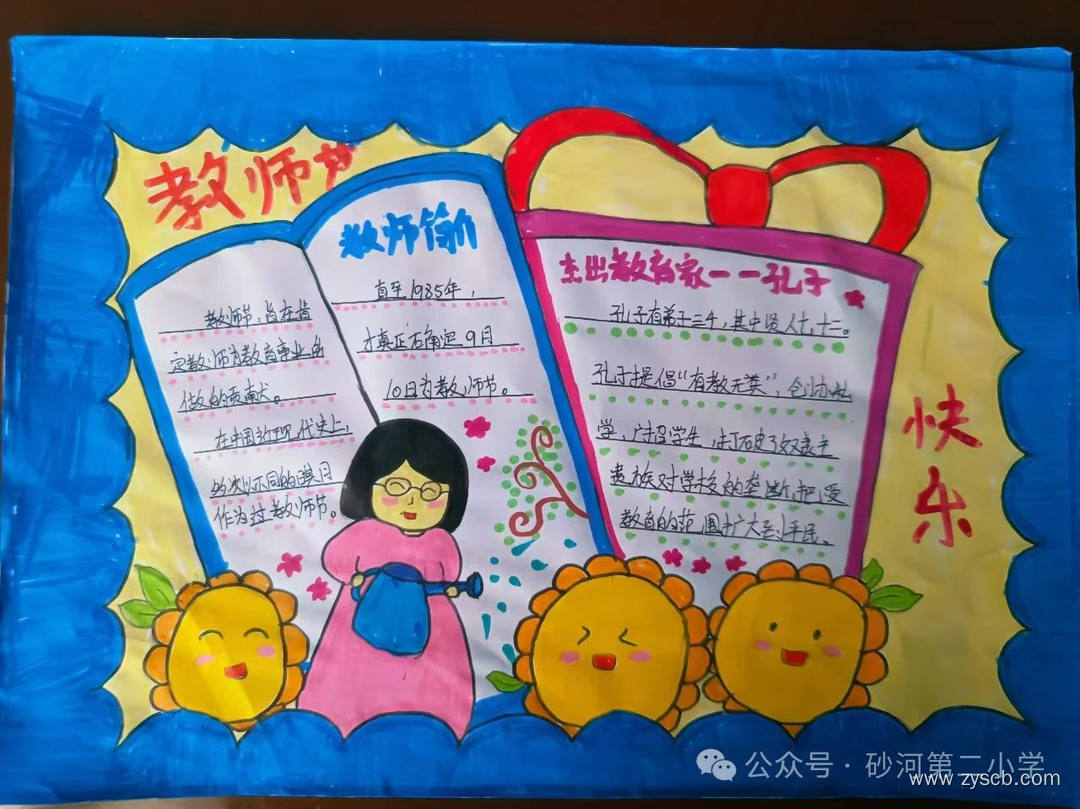 教师节
教师简介
教师节，旨在肯
定教师为教育事业所
做的贡献。
在中国近现代史上，
多次以不同的日期
作为过教师节。
直至1985年，
才真正右确定9月
10日为教师节。
杰出教育家——孔子
孔子有弟子三千，其中贤人七十二。
孔子提倡“有教无类”，创办私
学，广招学生，打破了奴隶主
贵族对学校的垄断，把受
教育的范围扩大到平民。
快
乐
公众号·砂河第二小学
www.zyscb.com